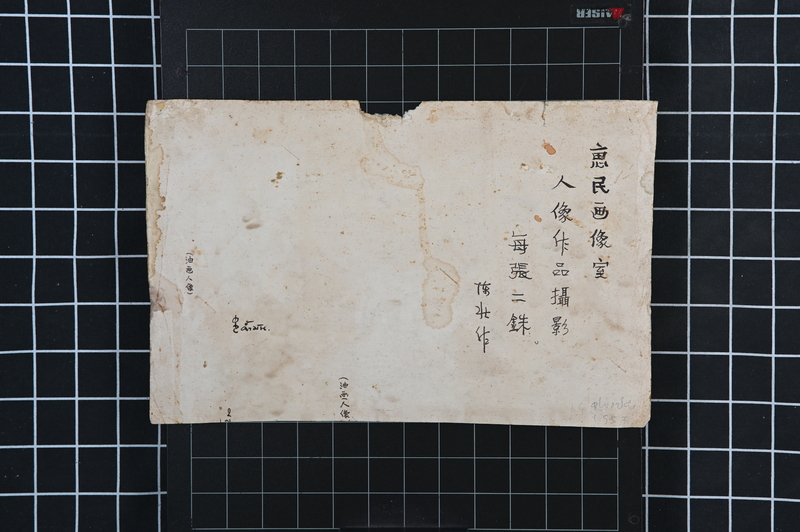 惠民画像室
人像作品攝影
每張二銖。
陳壯作
(油画人像)
(油画人像
KAISER